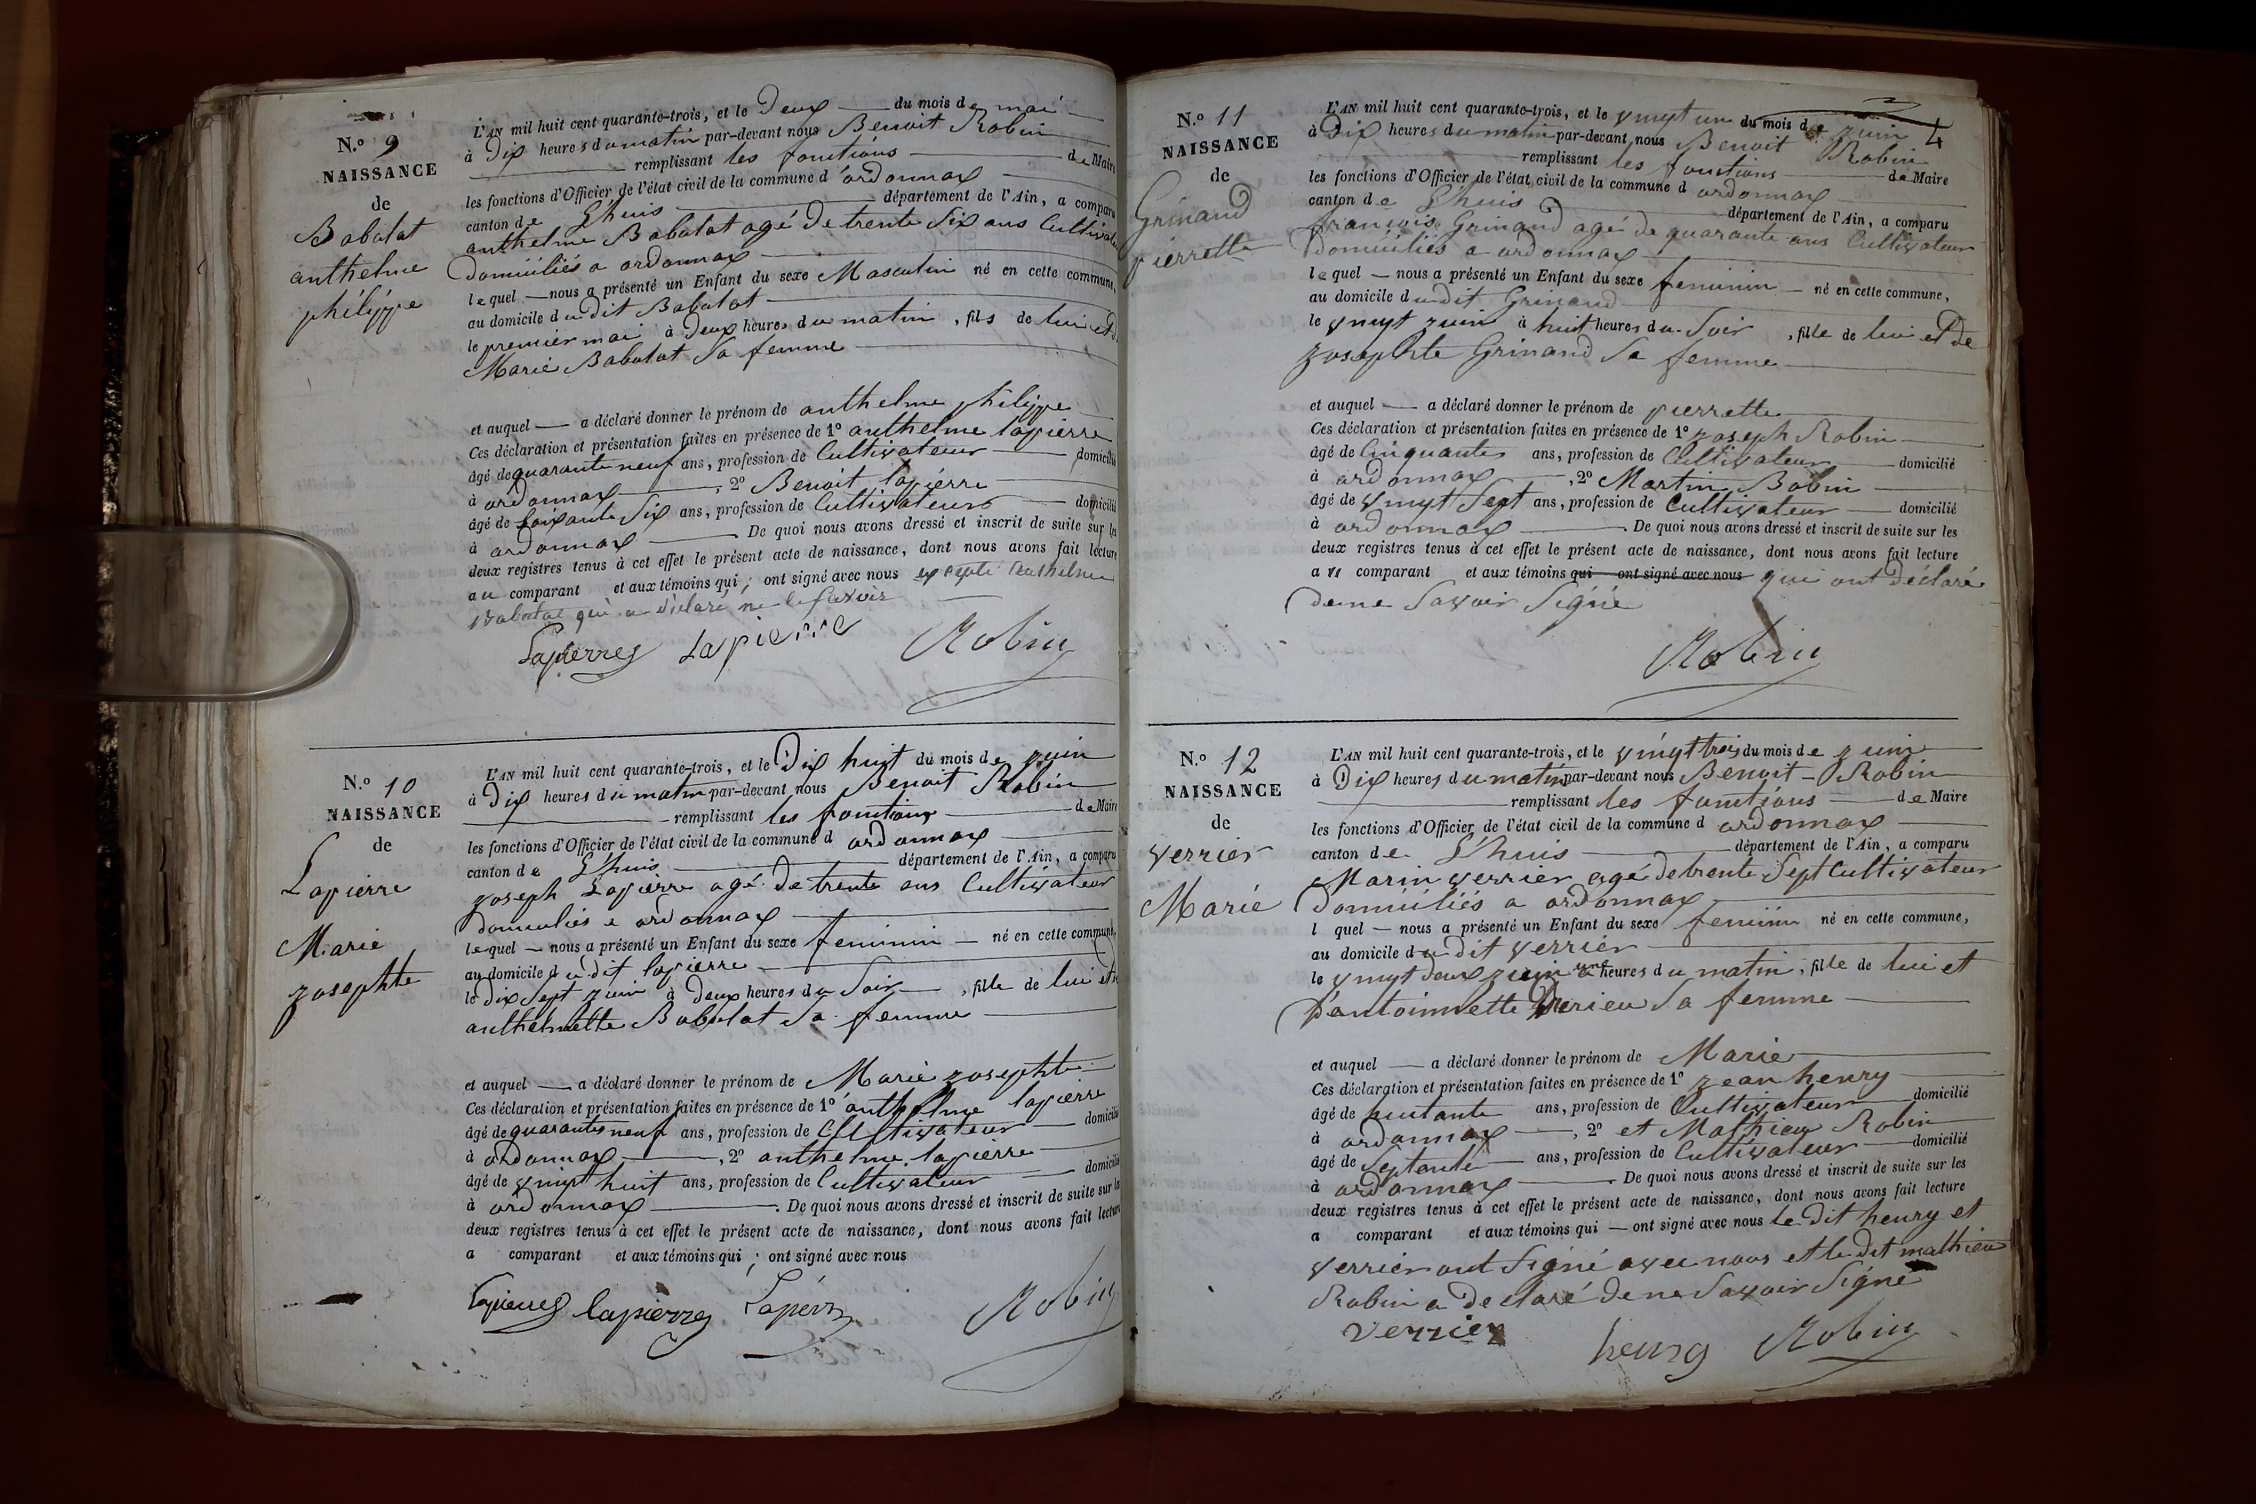 N.º 9
NAISSANCE
de
Babolat
anthelme
philippe
L'AN mil huit cent quarante-trois, et le Deux du mois de mai
à Dix heures du matin par-devant nous Benoit Robin
remplissant les fonctions de Maire
les fonctions d'Officier de l'état civil de la commune d'ordonnax
canton de L'huis département de l'Ain, a comparu
anthelme Babolat agé de trente Six ans Cultivateur
Domiciliés a ordonnax
lequel nous a présenté un Enfant du sexe Masculin né en cette commune,
au domicile du dit Babolat
le premier mai à Deux heures du matin, fils de lui et de
Marie Babolat Sa femme
et auquel a déclaré donner le prénom de anthelme philippe
Ces déclaration et présentation faites en présence de 1º anthelme lapierre
âgé de quarante neuf ans, profession de Cultivateur domicilié
à ordonnax, 2º Benoit lapierre
âgé de Soixante Six ans, profession de Cultivateur domicilié
à ordonnax. De quoi nous avons dressé et inscrit de suite sur les
deux registres tenus à cet effet le présent acte de naissance, dont nous avons fait lecture
au comparant et aux témoins qui ont signé avec nous excepté l'anthelme
Babolat qui a déclaré ne le Savoir
Lapierre Lapierre Robin
N.º 10
NAISSANCE
de
Lapierre
Marie
Josephte
L'AN mil huit cent quarante-trois, et le Dix huit du mois de Juin
à Dix heures du matin par-devant nous Benoit Robin
remplissant les fonctions de Maire
les fonctions d'Officier de l'état civil de la commune d ordonnax
canton de L'huis département de l'Ain, a comparu
Joseph Lapierre agé de trente ans Cultivateur
Domiciliés a ordonnax
lequel nous a présenté un Enfant du sexe feminin né en cette commune,
au domicile du dit lapierre
le Dix Sept Juin à Deux heures du Soir, fille de lui et d
anthelmette Babolat Sa femme
et auquel a déclaré donner le prénom de Marie Josephte
Ces déclaration et présentation faites en présence de 1º anthelme lapierre
âgé de quarante neuf ans, profession de Cultivateur domicilié
à ordonnax, 2º anthelme lapierre
âgé de vingt huit ans, profession de Cultivateur domicilié
à ordonnax. De quoi nous avons dressé et inscrit de suite sur les
deux registres tenus à cet effet le présent acte de naissance, dont nous avons fait lecture
a comparant et aux témoins qui ont signé avec nous
Lapierre lapierre Lapierre Robin
4
N.º 11
NAISSANCE
de
Grinand
pierrette
L'AN mil huit cent quarante-trois, et le vingt un du mois de Juin
à Dix heures du matin par-devant nous Benoit Robin
remplissant les fonctions de Maire
les fonctions d'Officier de l'état civil de la commune d ordonnax
canton de L'huis département de l'Ain, a comparu
françois Grinand agé de quarante ans Cultivateur
Domiciliés a ordonnax
lequel nous a présenté un Enfant du sexe feminin né en cette commune,
au domicile du dit Grinand
le vingt Juin à huit heures du Soir, fille de lui et de
Josephte Grinand Sa femme
et auquel a déclaré donner le prénom de pierrette
Ces déclaration et présentation faites en présence de 1º Joseph Robin
âgé de Cinquante ans, profession de Cultivateur domicilié
à ordonnax, 2º Martin Bobin
âgé de vingt Sept ans, profession de Cultivateur domicilié
à ordonnax. De quoi nous avons dressé et inscrit de suite sur les
deux registres tenus à cet effet le présent acte de naissance, dont nous avons fait lecture
au comparant et aux témoins qui ont signé avec nous qui ont Déclaré
de ne Savoir Signé
Robin
N.º 12
NAISSANCE
de
verrier
Marie
L'AN mil huit cent quarante-trois, et le vingt trois du mois de Juin
à Dix heures du matin par-devant nous Benoit Robin
remplissant les fonctions de Maire
les fonctions d'Officier de l'état civil de la commune d ordonnax
canton de L'huis département de l'Ain, a comparu
Marin verrier agé de trente Sept Cultivateur
Domiciliés a ordonnax
l quel nous a présenté un Enfant du sexe feminin né en cette commune,
au domicile du dit verrier
le vingt deux Juin à une heures du matin, fille de lui et
D'antoinnette Sa femme
et auquel a déclaré donner le prénom de Marie
Ces déclaration et présentation faites en présence de 1º Jean henry
âgé de huitante ans, profession de Cultivateur domicilié
à ordonnax, 2º et Mathieu Robin
âgé de Septante ans, profession de Cultivateur domicilié
à ordonnax. De quoi nous avons dressé et inscrit de suite sur les
deux registres tenus à cet effet le présent acte de naissance, dont nous avons fait lecture
a comparant et aux témoins qui ont signé avec nous le dit henry et
verrier ont Signé avec nous et le dit mathieu
Robin a Declaré de ne Savoir Signé
verrier henry Robin